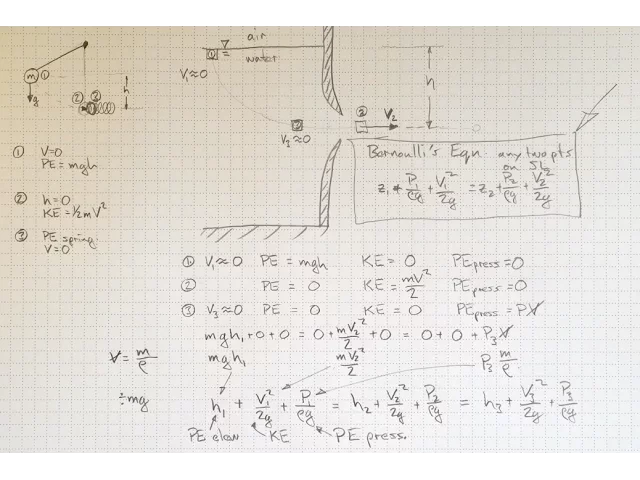 air
water
m ①
g
② ③
h
① V=0
PE = mgh
② h=0
KE = 1/2 mV²
③ PE spring.
V=0
①
V₁≈0
③
V₃≈0
② V₂
h
Bernoulli's Eqn. any two pts
on SL
z₁ + P₁/ρg + V₁²/2g = z₂ + P₂/ρg + V₂²/2g
① V₁≈0 PE = mgh KE = 0 PE press = 0
② PE = 0 KE = mV²/2 PE press = 0
③ V₃≈0 PE = 0 KE = 0 PE press = PV̶
mgh₁ + 0 + 0 = 0 + mV₂²/2 + 0 = 0 + 0 + P₃V̶
V̶ = m/ρ mgh₁ mV₂²/2 P₃ m/ρ
÷mg
h₁ + V₁²/2g + P₁/ρg = h₂ + V₂²/2g + P₂/ρg = h₃ + V₃²/2g + P₃/ρg
PE elev KE PE press.